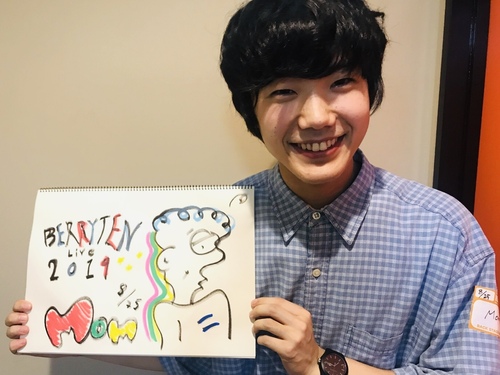 BERRYTEN
LIVE
2019
8/25
MOM
8/25
Mo